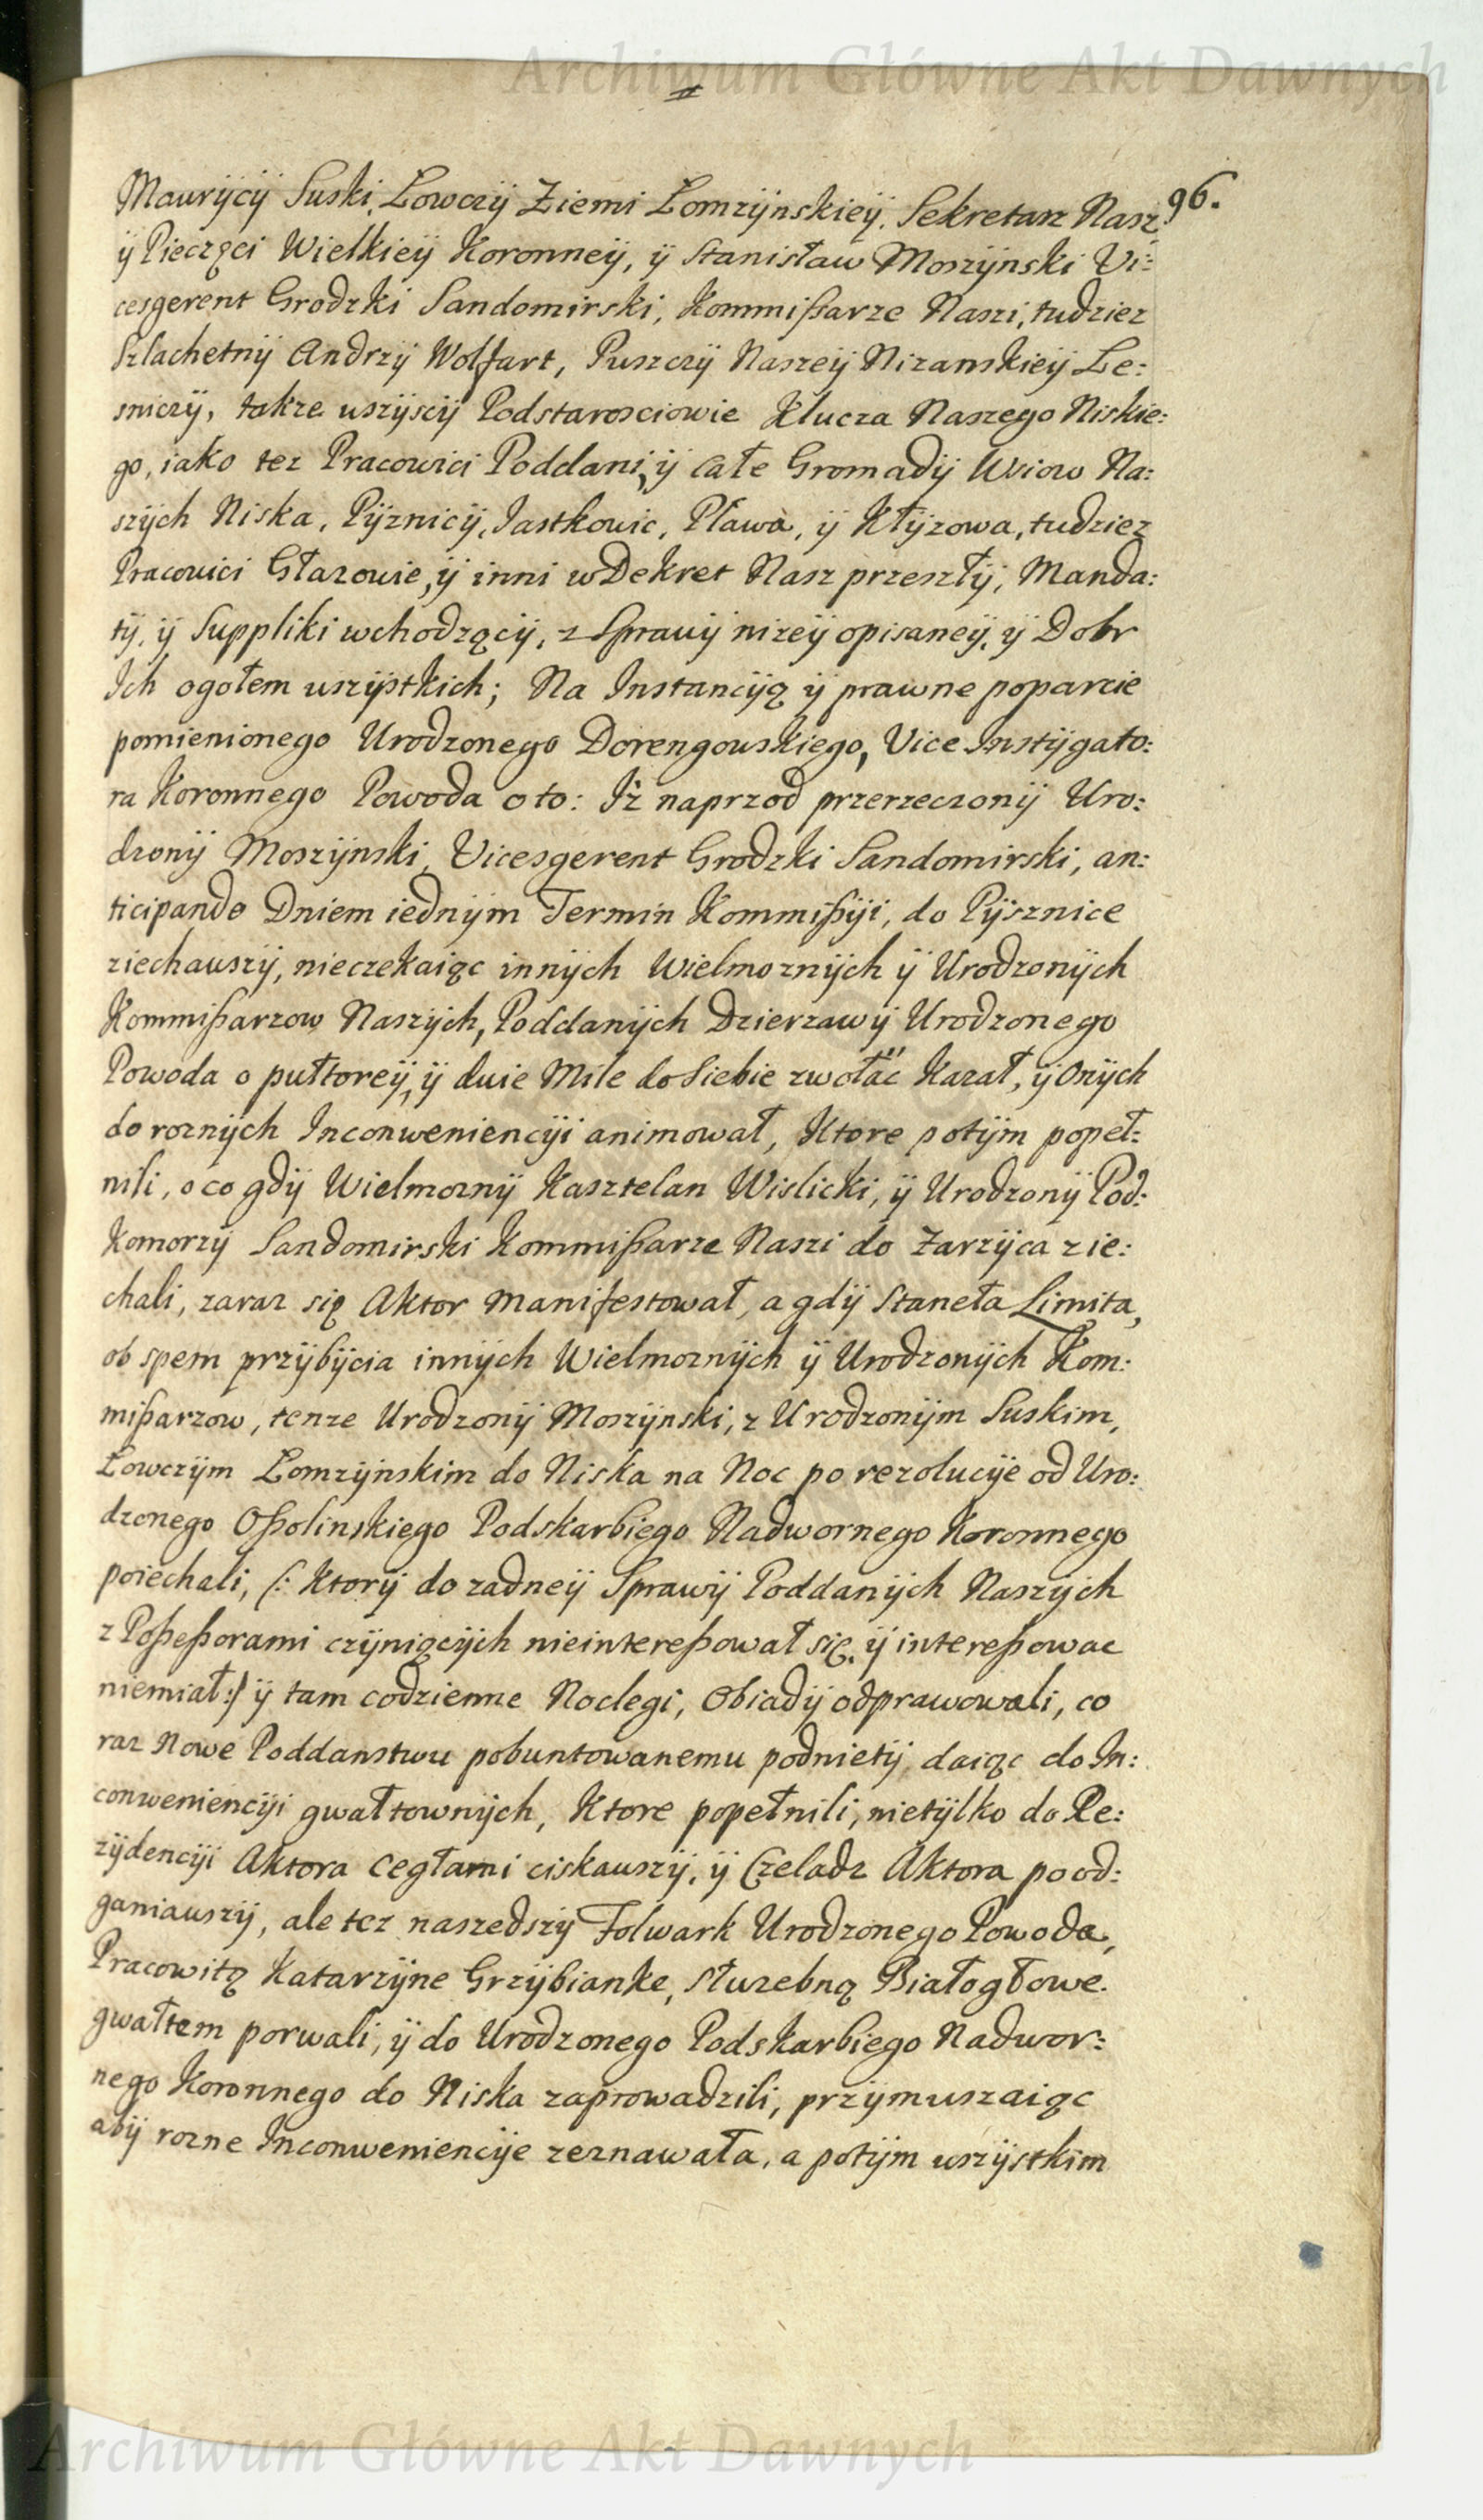 Archiwum Główne Akt Dawnych
96.
Maurÿcÿ Suski, Łowczÿ Ziemi Łomzÿnskieÿ, Sekretarz Nasz,
ÿ Pieczęci Wielkieÿ Koronneÿ, ÿ Stanisław Moszÿnski Vi:
cesgerent Grodzki Sandomirski, Kommißarze Naszi, tudziez
Szlachetnÿ Andrzÿ Wolfart, Puszczÿ Naszeÿ Nizanskieÿ Le:
sniczÿ, takze wszÿscÿ Podstarosciowie Klucza Naszego Niskie:
go, iako tez Pracowici Poddani, ÿ całe Gromadÿ Wsiow Na:
szÿch Niska, Pÿznicÿ, Jastkowic, Pława, ÿ Kłÿzowa, tudziez
Pracowici Głazowie, ÿ inni w Dekret Nasz przeszłÿ, Manda:
tÿ, ÿ Suppliki wchodzącÿ, z Sprawÿ nizeÿ opisaneÿ, ÿ Dobr
Ich ogołem wszÿstkich; Na Instancÿą ÿ prawne poparcie
pomienionego Urodzonego Dorengowskiego, Vice Instÿgato:
ra Koronnego Powoda o to: Iż naprzod przerzeczonÿ Uro:
dzonÿ Moszÿnski, Vicesgerent Grodzki Sandomirski, an:
ticipando Dniem iednÿm Termin Kommißÿi, do Pÿsznice
ziechawszÿ, nieczekaiąc innÿch Wielmoznÿch ÿ Urodzonÿch
Kommißarzow Naszÿch, Poddanÿch Dzierzawÿ Urodzonego
Powoda o pułtoreÿ, ÿ dwie Mile do Siebie zwołać kazał, ÿ Onÿch
do roznÿch Inconweniencÿi animował, Ktore potÿm popeł:
nili, o co gdÿ Wielmoznÿ Kasztelan Wislicki, ÿ Urodzonÿ Pod:
Komorzÿ Sandomirski Kommißarze Naszi do Zarzÿca zie:
chali, zaraz się Aktor manifestował, a gdÿ Staneła Limita,
ob spem przÿbÿcia innÿch Wielmoznÿch ÿ Urodzonÿch Kom:
mißarzow, tenze Urodzonÿ Moszÿnski, z Urodzonÿm Suskim,
Łowczÿm Łomzÿnskim do Niska na Noc po rezolucÿe od Uro:
dzonego Oßolinskiego Podskarbiego Nadwornego Koronnego
poiechali, (: Ktorÿ do zadneÿ Sprawÿ Poddanÿch Naszÿch
z Poßeßorami czÿniącÿch nieintereßował się, ÿ intereßowac
niemiał :) ÿ tam codzienne Noclegi, Obiadÿ odprawowali, co
raz Nowe Poddanstwu pobuntowanemu podnietÿ, daiąc do In:
conweniencÿi gwałtownÿch, Ktore popełnili, nietÿlko do Re:
zÿdencÿi Aktora cegłami ciskawszÿ, ÿ Czeladz Aktora pood:
ganiawszÿ, ale tez naszedszÿ Folwark Urodzonego Powoda,
Pracowitą Katarzÿne Grzÿbianke, słuzebną Białogłowe.
gwałtem porwali, ÿ do Urodzonego Podskarbiego Nadwor:
nego Koronnego do Niska zaprowadzili, przÿmuszaiąc
abÿ rozne Inconweniencÿe zeznawała, a potÿm wszÿstkim
Archiwum Główne Akt Dawnych